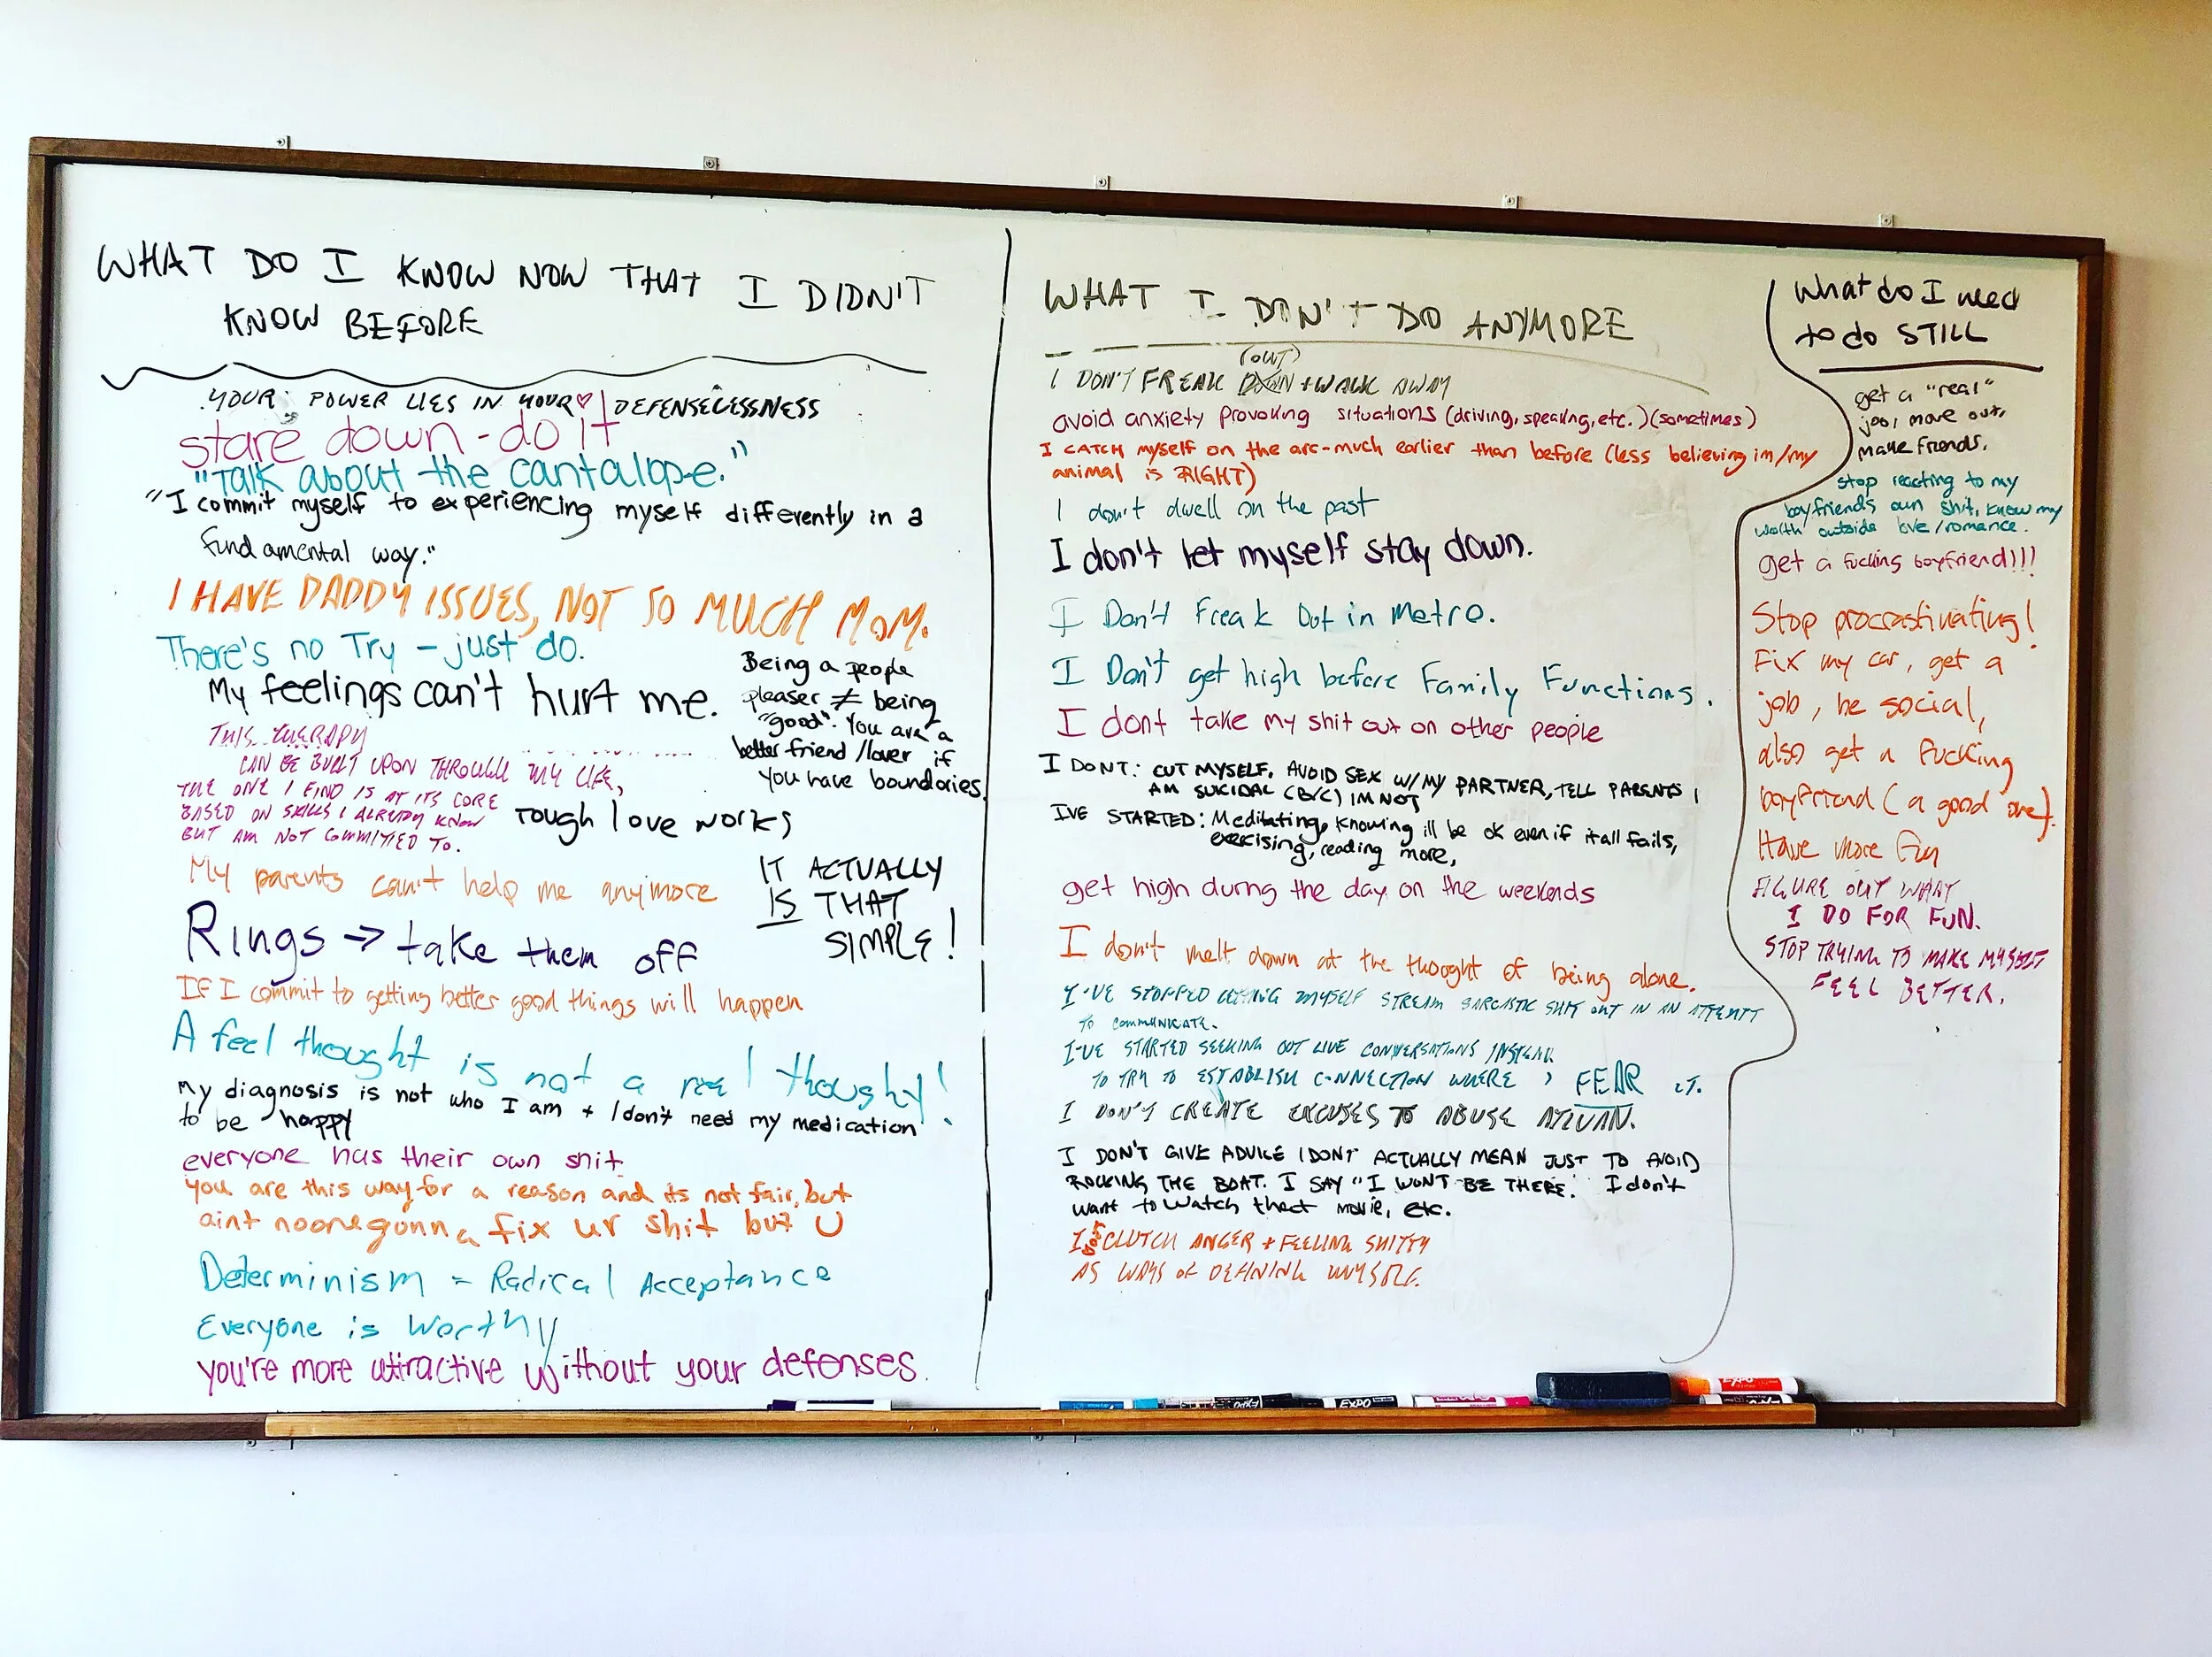 WHAT DO I KNOW NOW THAT I DIDN'T
KNOW BEFORE
YOUR POWER LIES IN YOUR ♡ | DEFENSELESSNESS
stare down - do it
"Talk about the cantalope."
"I commit myself to experiencing myself differently in a
fundamental way."
I HAVE DADDY ISSUES, NOT SO MUCH MOM.
There's no Try - just do.
My feelings can't hurt me.
Being a people
pleaser ≠ being
"good". You are a
better friend/lover if
you have boundories.
THIS THERAPY
CAN BE BUILT UPON THROUGH MY LIFE,
THE ONE I FIND IS AT ITS CORE
BASED ON SKILLS I ALREADY KNOW
BUT AM NOT COMMITTED TO.
Tough love works
My parents can't help me anymore
IT ACTUALLY
IS THAT
SIMPLE!
Rings → take them off
If I commit to getting better good things will happen
A feel thought is not a real thought!
My diagnosis is not who I am + I don't need my medication
to be happy
everyone has their own shit
you are this way for a reason and its not fair, but
aint noone gonna fix ur shit but U
Determinism = Radical Acceptance
Everyone is Worthy
you're more attractive without your defenses.
WHAT I DON'T DO ANYMORE
(OUT)
I DON'T FREAK DOWN + WALK AWAY
avoid anxiety provoking situations (driving, speaking, etc.) (sometimes)
I CATCH myself on the arc-much earlier than before (less believing in/my
animal is RIGHT)
I don't dwell on the past
I don't let myself stay down.
I Don't Freak Out in Metro.
I Don't get high before Family Functions.
I dont take my shit out on other people
I DONT: CUT MYSELF, AVOID SEX W/ MY PARTNER, TELL PARENTS I
AM SUICIDAL (B/C) IM NOT
IVE STARTED: Meditating, knowing ill be ok even if it all fails,
exercising, reading more,
get high during the day on the weekends
I don't melt down at the thought of being alone.
I'VE STOPPED LETTING MYSELF STREAM SARCASTIC SHIT OUT IN AN ATTEMPT
TO COMMUNICATE.
I'VE STARTED SEEKING OUT LIVE CONVERSATIONS INSTEAD
TO TRY TO ESTABLISH CONNECTION WHERE I FEAR IT.
I DON'T CREATE EXCUSES TO ABUSE ATIVAN.
I DON'T GIVE ADVICE I DONT ACTUALLY MEAN JUST TO AVOID
ROCKING THE BOAT. I SAY "I WON'T BE THERE." I don't
want to watch that movie, etc.
I DON'T CLUTCH ANGER + FEELING SHITTY
AS WAYS OF DEFINING MYSELF.
What do I need
to do STILL
get a "real"
job, move out,
make friends.
stop reacting to my
boyfriends own shit, know my
worth outside love/romance.
get a fucking boyfriend!!!
Stop procrastinating!
Fix my car, get a
job, be social,
also get a fucking
boyfriend (a good one).
Have more fun
FIGURE OUT WHAT
I DO FOR FUN.
STOP TRYING TO MAKE MYSELF
FEEL BETTER.
EXPO
EXPO
EXPO